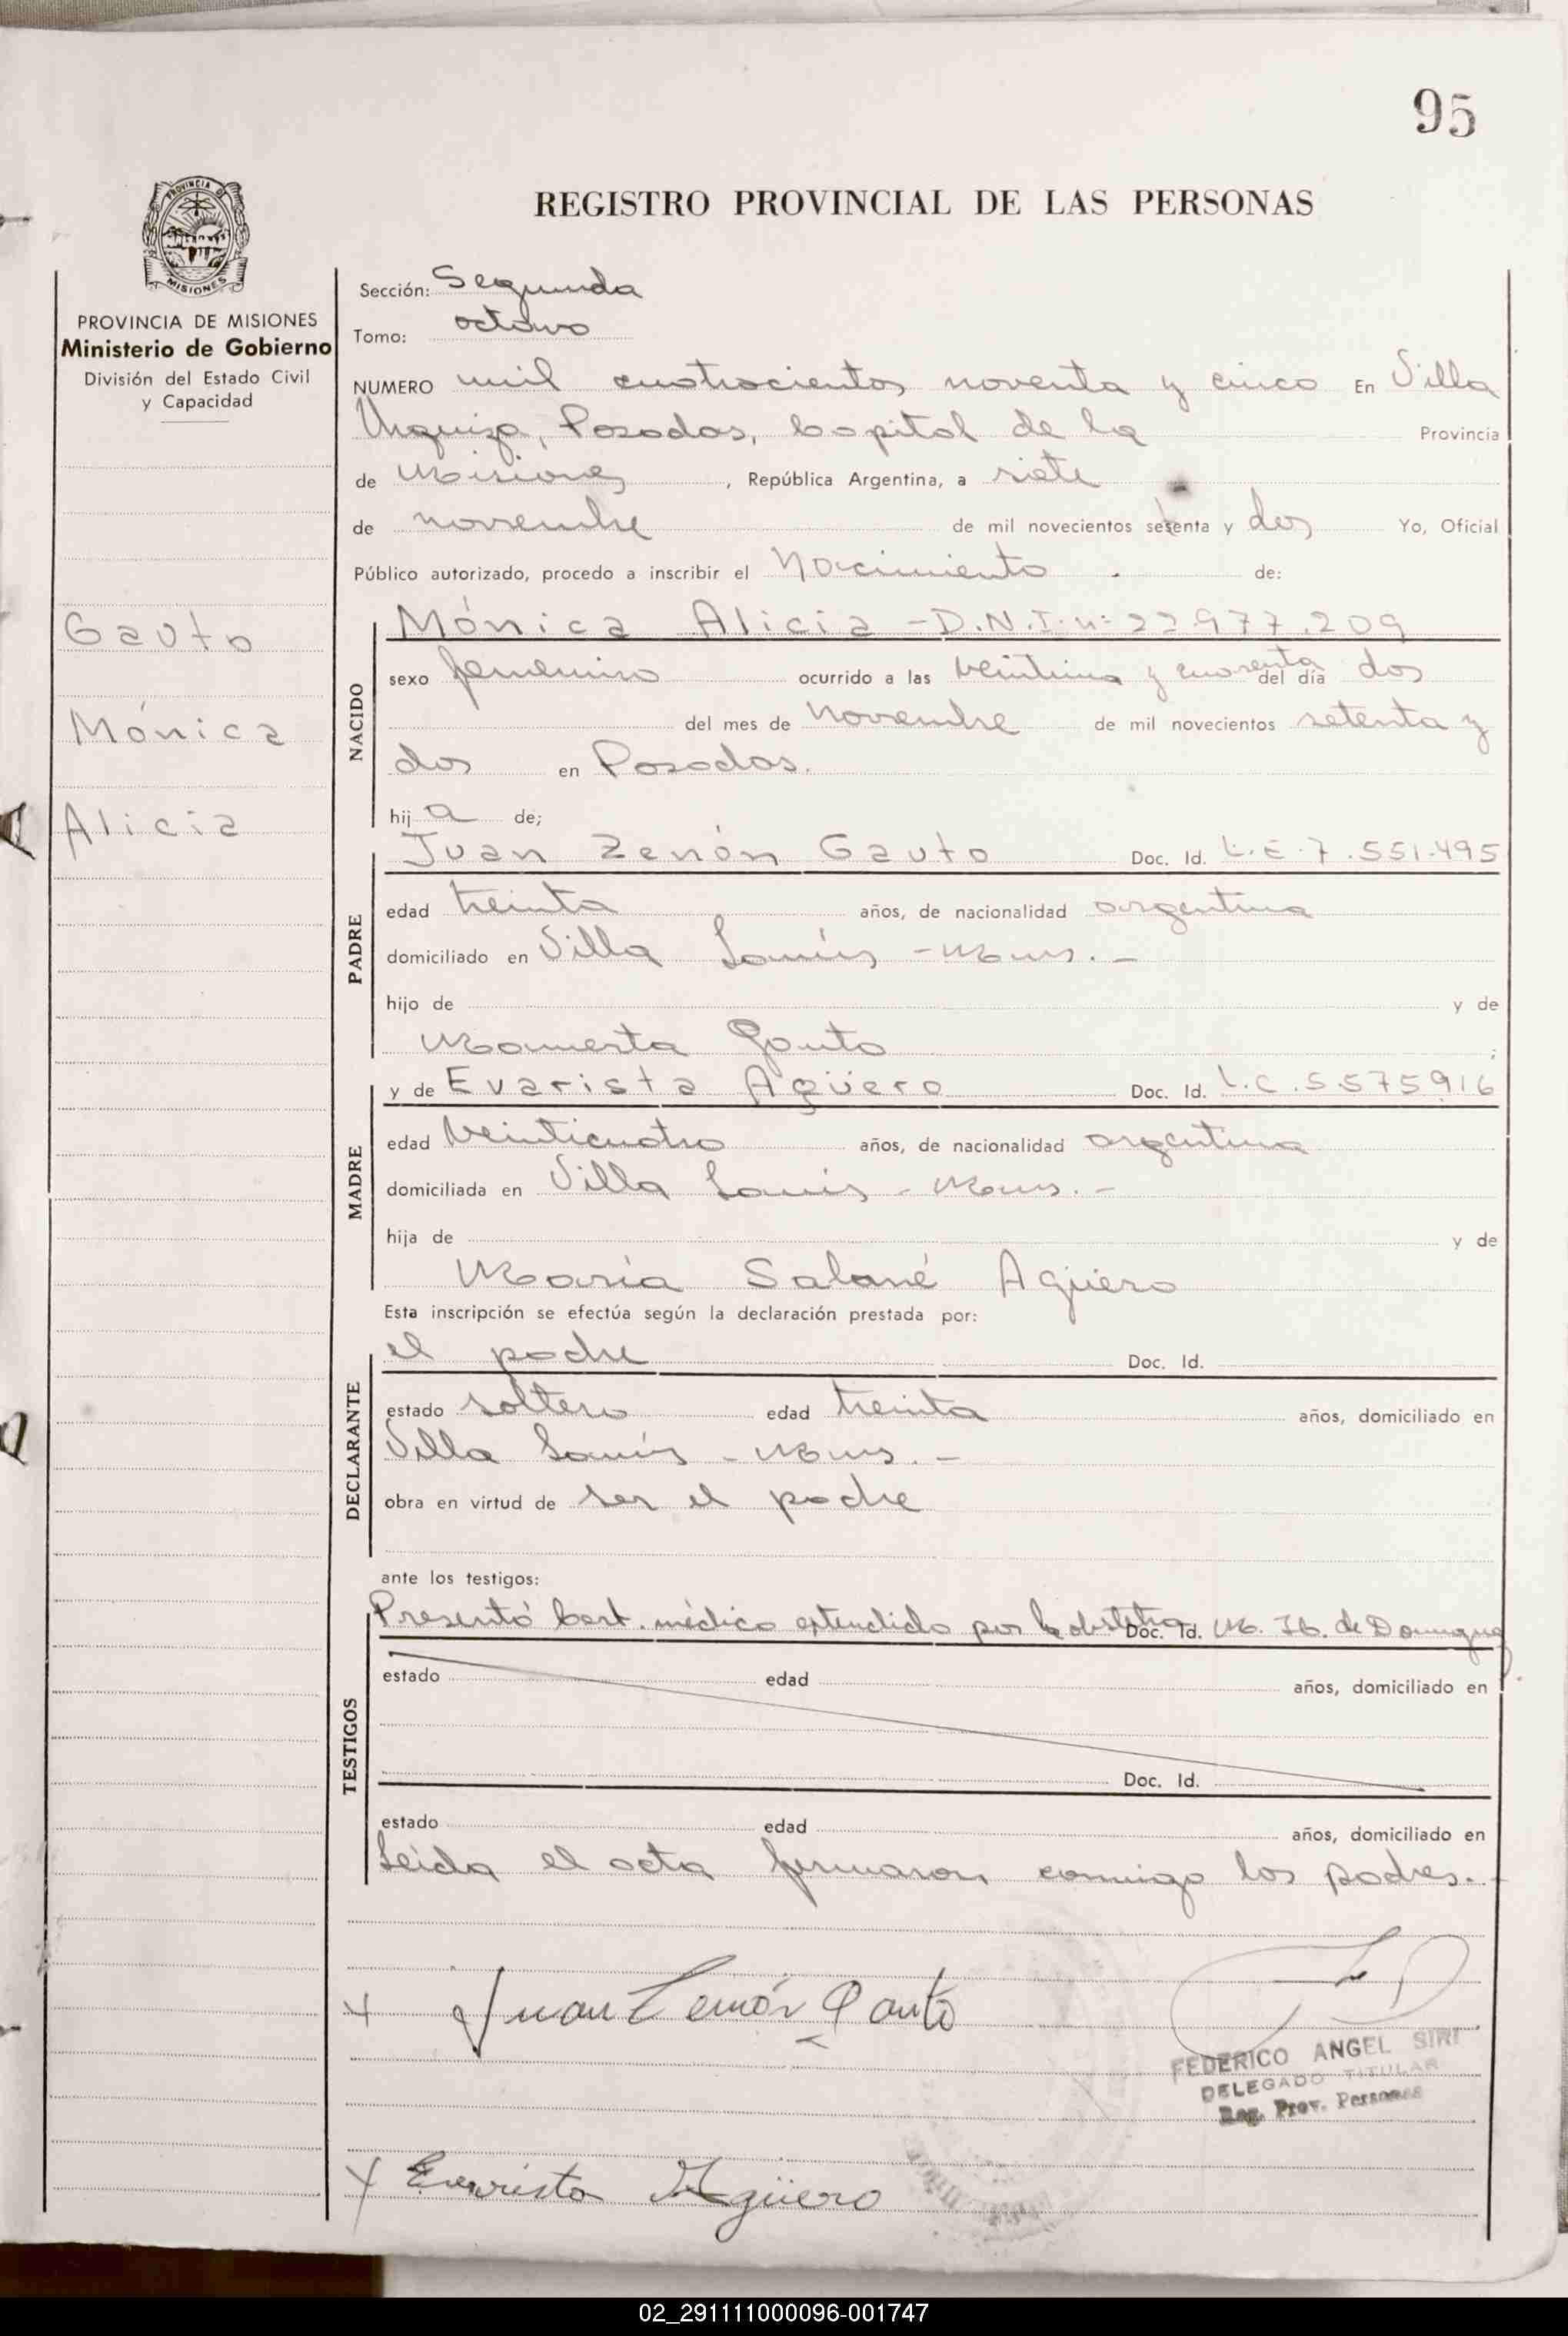 95
REGISTRO PROVINCIAL DE LAS PERSONAS
PROVINCIA DE MISIONES
PROVINCIA DE MISIONES
Ministerio de Gobierno
División del Estado Civil
y Capacidad
Gauto
Mónica
Alicia
Sección: Segunda
Tomo: octavo
NUMERO mil cuatrocientos noventa y cinco En Villa
Urquiza, Posadas, Capital de la Provincia
de Misiones, República Argentina, a siete
de noviembre de mil novecientos setenta y dos Yo, Oficial
Público autorizado, procedo a inscribir el Nacimiento de:
NACIDO
Mónica Alicia - D.N.I. n: 22.977.209
sexo femenino ocurrido a las veintiuna y cuarenta del día dos
del mes de Noviembre de mil novecientos setenta y
dos en Posadas.
hija de;
PADRE
Juan Zenón Gauto Doc. Id. L.E. 7.551.495
edad treinta años, de nacionalidad argentina
domiciliado en Villa Lanús - Mnes. -
hijo de y de
Mamerta Gauto
MADRE
y de Evarista Agüero Doc. Id. L.C. 5.575916
edad veinticuatro años, de nacionalidad argentina
domiciliada en Villa Lanús - Mnes. -
hija de y de
María Salomé Agüero
Esta inscripción se efectúa según la declaración prestada por:
DECLARANTE
el padre Doc. Id.
estado soltero edad treinta años, domiciliado en
Villa Lanús - Mnes. -
obra en virtud de ser el padre
ante los testigos:
TESTIGOS
Presentó Cert. médico extendido por la obstetra Doc. Id. M. de Dominguez
estado edad años, domiciliado en
Doc. Id.
estado edad años, domiciliado en
Leida el acta firmaron conmigo los padres.-
Juan Zenón Gauto
FEDERICO ANGEL SIRI
DELEGADO TITULAR
Reg. Prov. Personas
Evarista Agüero
02_291111000096-001747